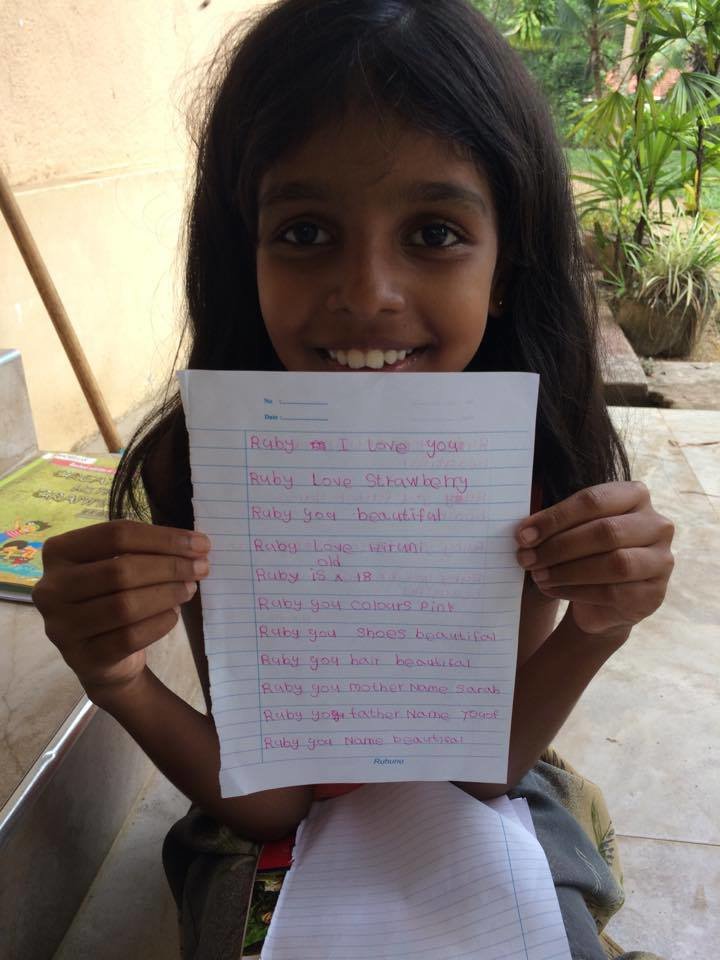 No :
Date :
Ruby I Love you
Ruby Love Strawberry
Ruby you beautiful
Ruby Love wiruni
old
Ruby is x 18
Ruby you colours Pink
Ruby you shoes beautifal
Ruby you hair beautifal
Ruby you mother Name Sarah
Ruby you father Name
Ruby you Name beautifal
Ruhunu